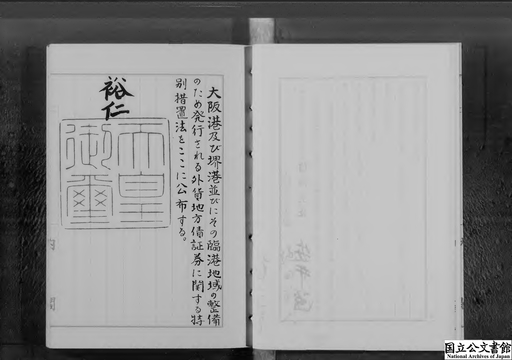 大阪港及び堺港並びにその臨港地域の整備
のため発行される外貨地方債証券に関する特
別措置法をここに公布する。
裕仁
天皇
御璽
国立公文書館
National Archives of Japan